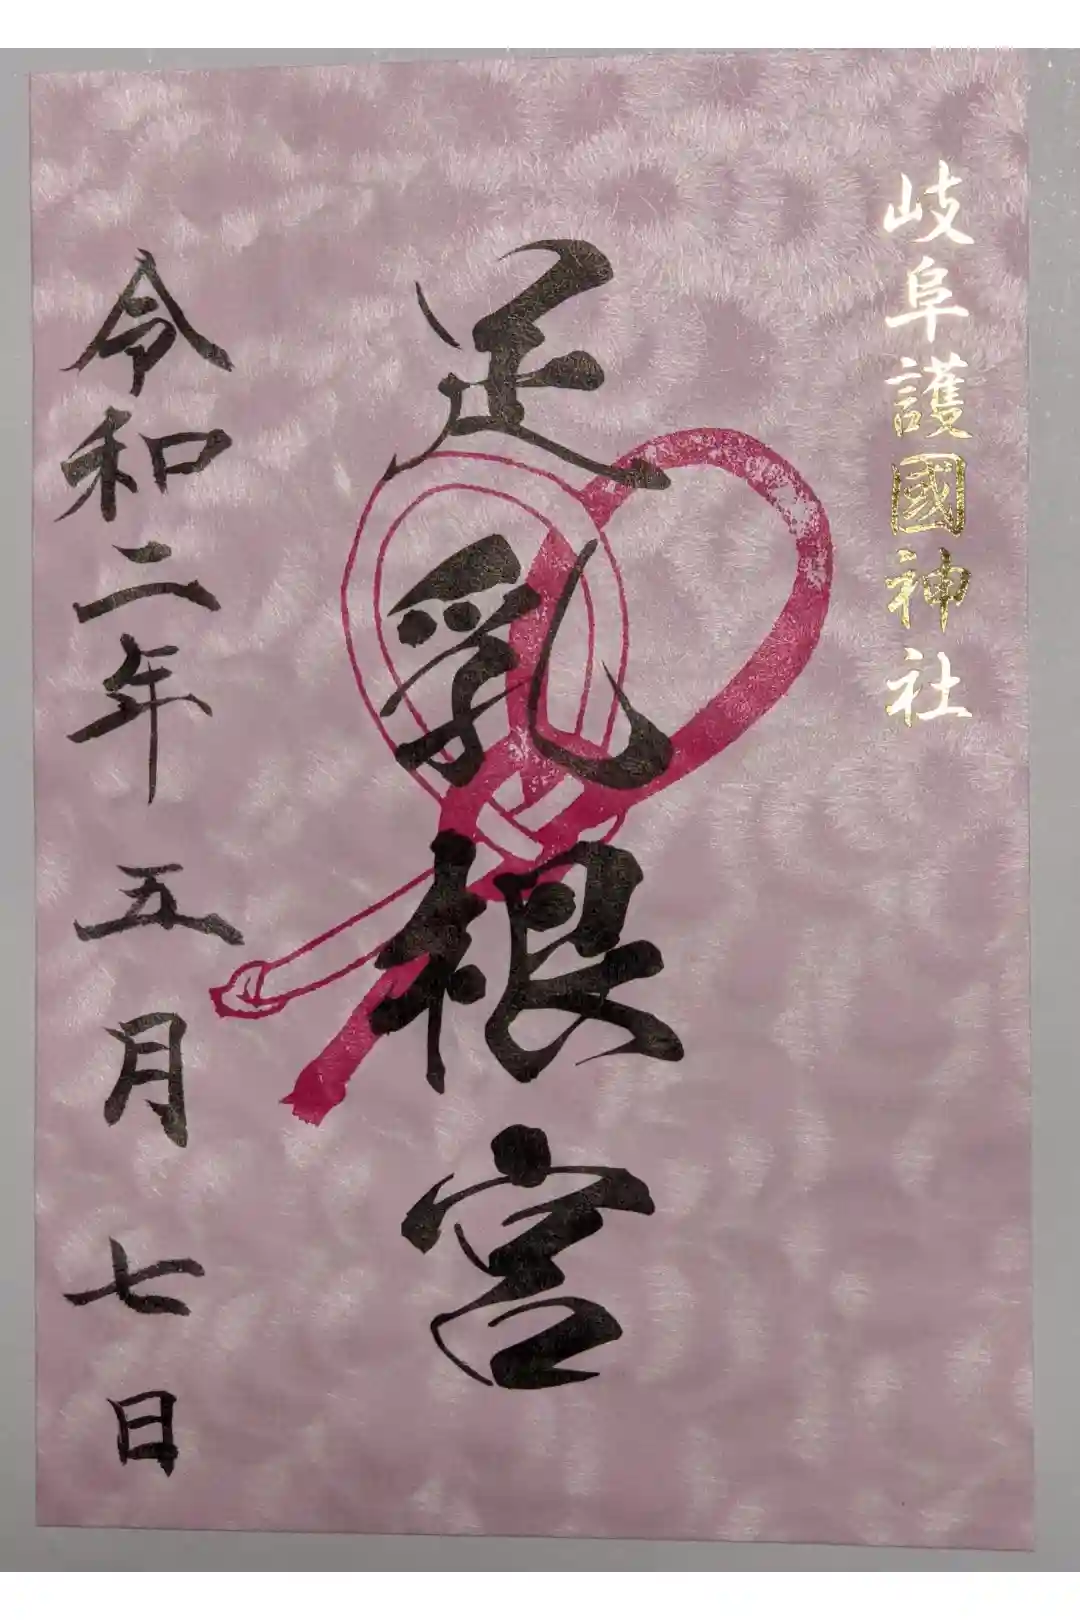 岐阜護國神社
足乳根宮
令和二年五月七日